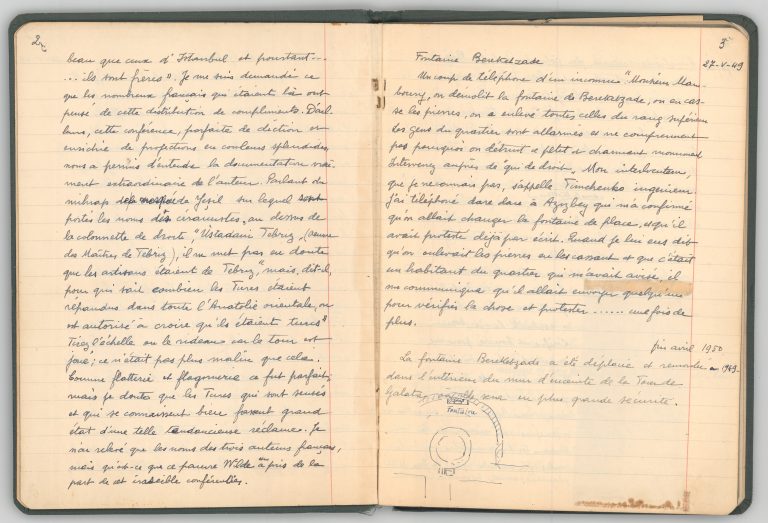 2
beau que ceux d'Istanbul et pourtant...
... ils sont frères". Je me suis demandé ce
que les nombreux français qui étaient là ont
pensé de cette distribution de compliments. D'ail-
leurs, cette conférence, parfaite de diction et
enrichie de projections en couleurs splendides,
nous a permis d'entendre la documentation vrai-
ment extraordinaire de l'auteur. Parlant du
mihrap de Yesil sur lequel sont
portés les noms des céramistes, au dessus de
la colonnette de droite, "Ustadani Tebriz" (œuvre
des Maîtres de Tebriz), il ne met pas en doute
que les artisans étaient de Tebriz", mais, dit-il,
pour qui sait combien les Turcs étaient
répandus dans toute l'Anatolie orientale, on
est autorisé a croire qu'ils étaient turcs"
Tirez l'échelle ou le rideau car le tour est
joué; ce n'était pas plus malin que cela.
Comme flatterie et flagornerie ce fut parfait,
mais je doute que les Turcs qui sont sensés
et qui se connaissent bien fassent grand
état d'une telle tendancieuse réclame. Je
n'ai relevé que les noms des trois auteurs français,
mais qu'est-ce que ce pauvre Wilde a pris de la
part de cet irascible conférencier.
3
27-V-49
Fontaine Bereketzade
Un coup de téléphone d'un inconnu "Monsieur Mam-
boury, on démolit la fontaine de Bereketzade, on en cas-
se les pierres, on a enlevé toutes celles du rang supérieur
Les gens du quartier sont allarmés et ne comprennent
pas pourquoi on détruit ce petit et charmant monument
Intervenez auprès de "qui de droit". Mon interlocuteur,
que je ne connais pas, s'appelle Timchenko ingénieur
J'ai téléphoné dare dare à Azizbey qui m'a confirmé
qu'on allait changer la fontaine de place, et qu'il
avait protesté déjà par écrit. Quand je lui eus dit
qu'on enlevait les pierres en les cassant et que c'était
un habitant du quartier qui m'avait avisé, il
me communiqua qu'il allait envoyer quelqu'un
pour vérifier la chose et protester ...... une fois de
plus.
fin avril 1950
La fontaine Bereketzade a été déplacée et remontée en 1949
dans l'intérieur du mur d'enceinte de la Tour de
Galata, sera en plus grande sécurité.
Fontaine